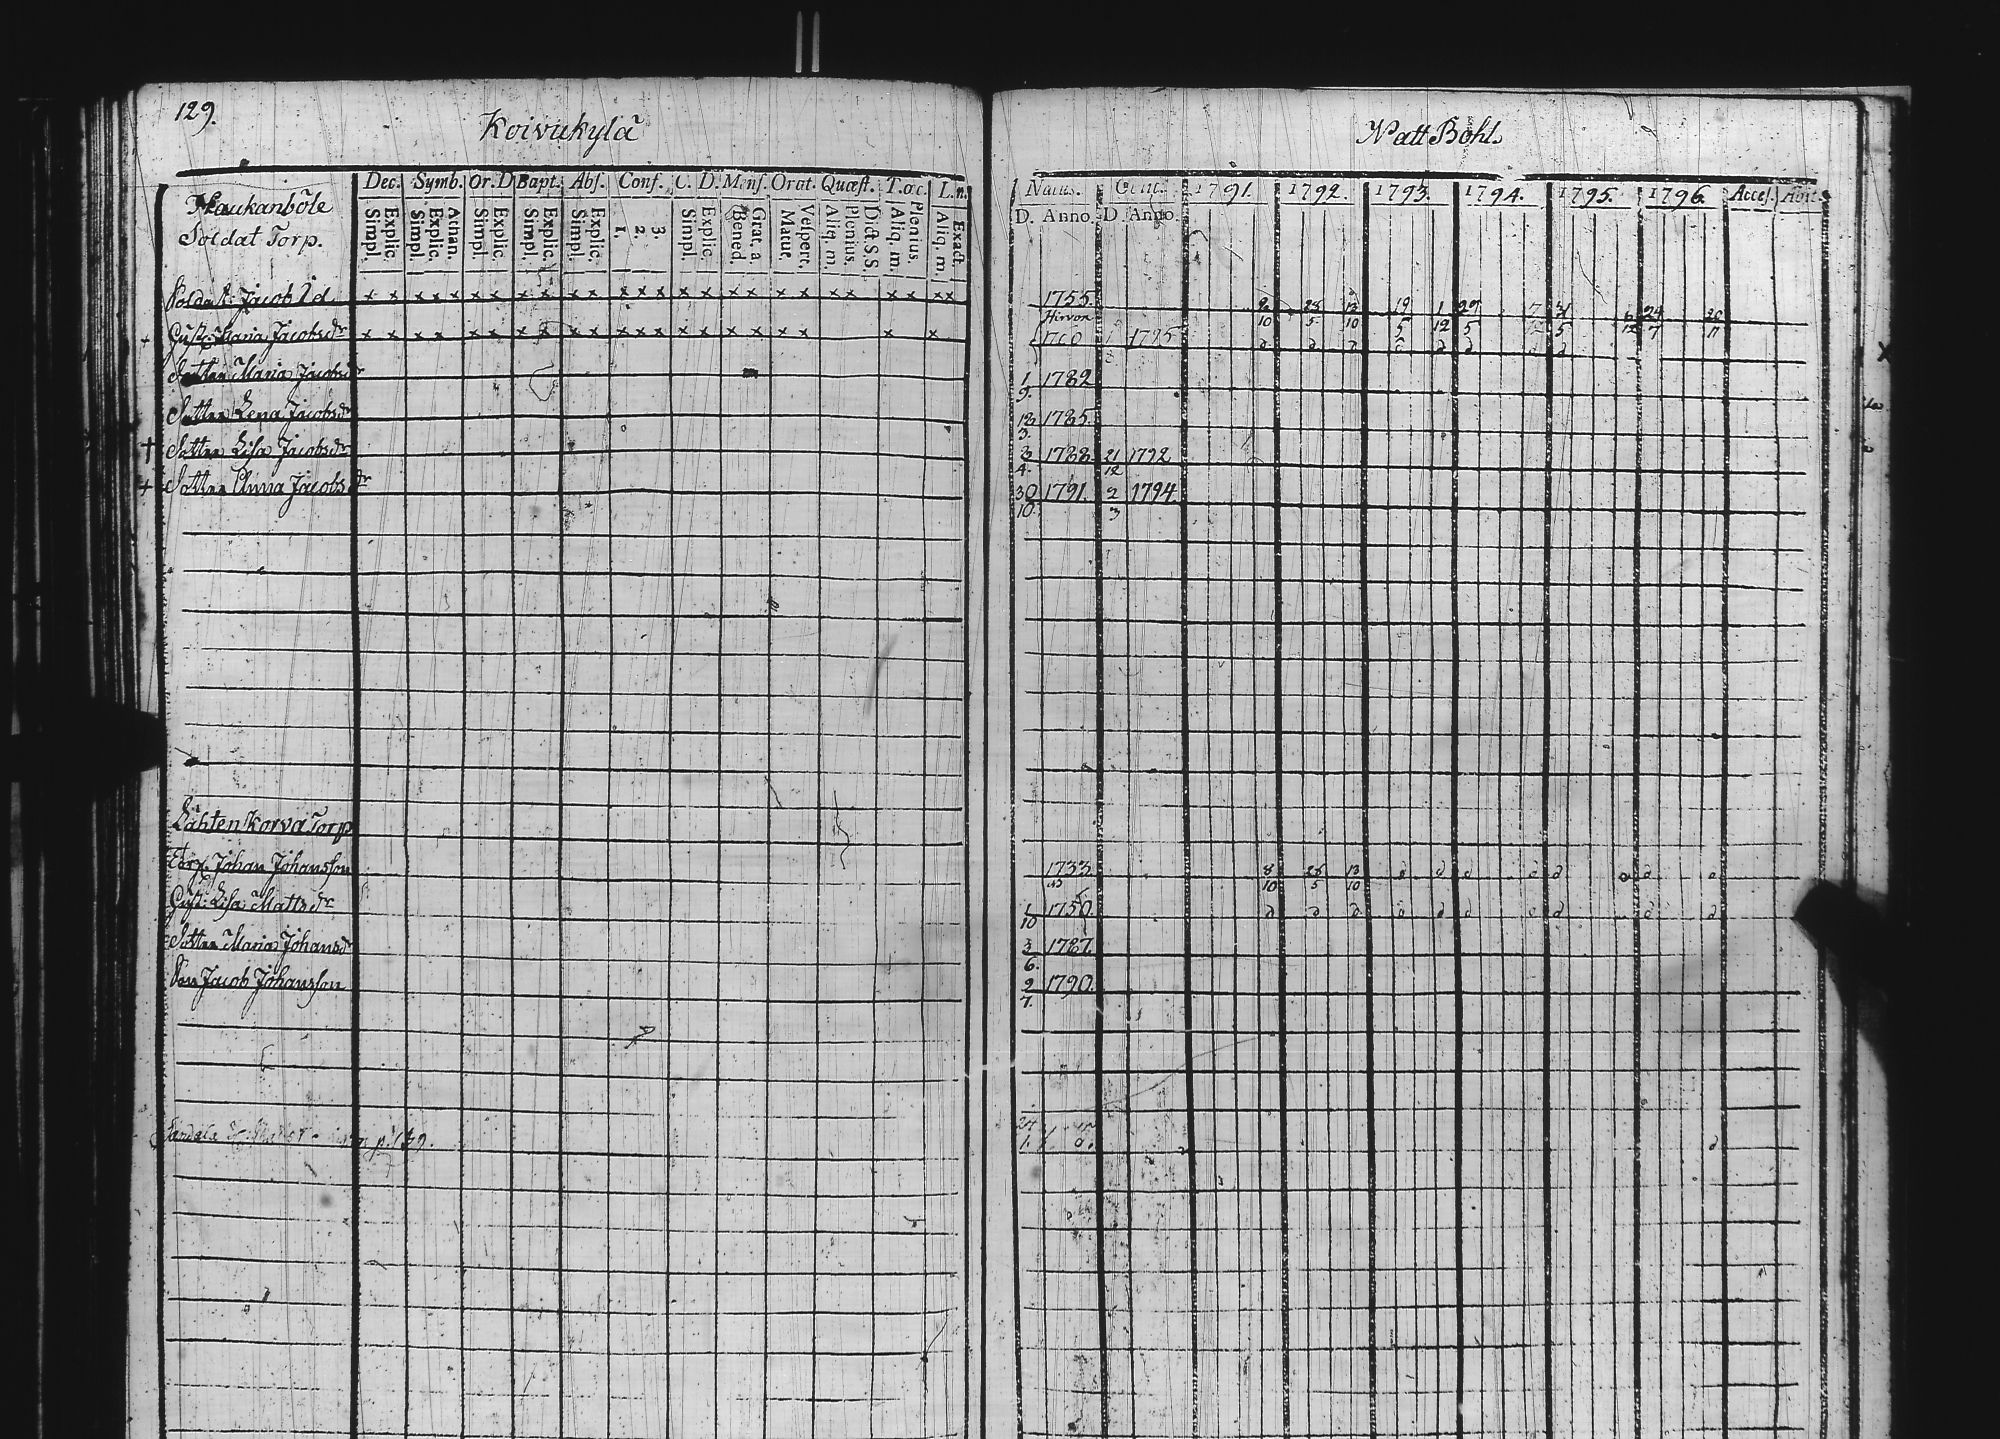 129.
Koivukylä
Natt Böhl.
Haukanböle
Soldat Torp.
Dec. Symb. Or. D Bapt. Abs. Conf. C. D. Mens. Orat. Quæst. T. oec. L. n.
Simpl. Explic. Simpl. Explic. Athan. Simpl. Explic. Simpl. Explic. Simpl. Explic. 1. 2. 3. Simpl. Explic. Bened. Grat. a. Matut. Vespert. Aliq. m. Plenius. Dict. S.S. Aliq. m. Plenius. Aliq. m. Exact.
Natus. 1791. 1792. 1793. 1794. 1795. 1796. Acces. Abit.
D. Anno. D. Anno.
Soldat: Jacob x x x x x x x x x x x x x x x x x x x x x x x x x 1755. 28 13 19 1 29 31 24
Hirvon 10 5 10 5 12 5 5 12 7 11
Hust: Maria Jacobsdr x x x x x x x x x x x x x x x x x x x x x x 1760 1795
Dotter Maria Jacobsdr 1 1782
9.
Dotter Lena Jacobsdr 1785.
3.
† Dotter Lisa Jacobsdr 3 1788 21 1792
4. 12
+ Dotter Anna Jacobsdr 30 1791. 2 1794
10. 3
Lähtenkorva Torp
Torp. Johan Johansson 1733 8 28 13
10 5 10
Hust: Lisa Mattsdr 1 1750.
10
Dotter Maria Johansdr 3 1787.
6.
Son Jacob Johansson 2 1790.
7.
p. 139.